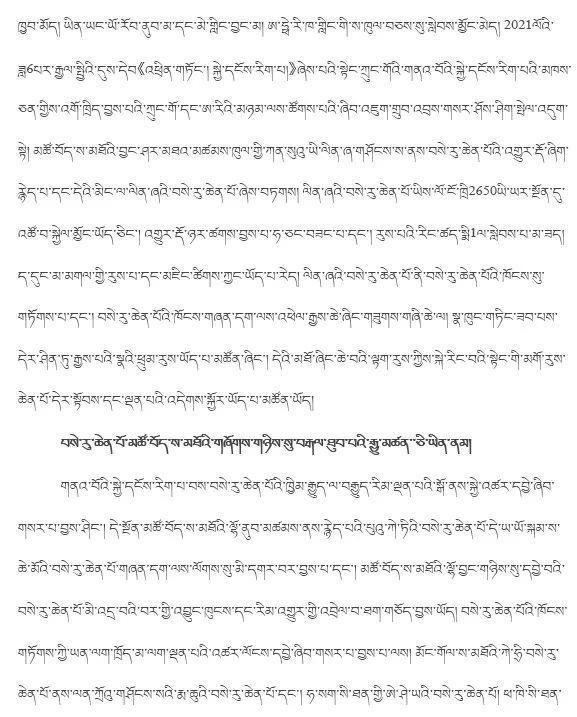 ཁྱབ་མོད། ཡིན་ཡང་ཡོ་རོབ་ནུབ་མ་དང་མེ་གླིང་བྱང་མ། ཨ་ཧྥེ་རི་ཁ་གླིང་གི་ས་ཁུལ་བཅས་སུ་སླེབས་མྱོང་མེད། 2021ལོའི་
ཟླ6པར་རྒྱལ་སྤྱིའི་དུས་དེབ《འཕྲིན་གཏོང་། སྐྱེ་དངོས་རིག་པ།》ཞེས་པའི་སྟེང་ཀྲུང་གོའི་གནའ་བོའི་སྐྱེ་དངོས་རིག་པའི་མཁས་
ཅན་གྱིས་འགོ་ཁྲིད་བྱས་པའི་ཀྲུང་གོ་དང་ཨ་རིའི་མཉམ་ལས་ཚོགས་པའི་ཞིབ་འཇུག་གྲུབ་འབྲས་གསར་ཤོས་ཤིག་སྤེལ་འདུག་
སྟེ། མཚོ་བོད་ས་མཐོའི་བྱང་ཤར་མཐའ་མཚམས་ཁུལ་གྱི་ཀན་སུའུ་ཡི་ལིན་ཞ་གཤོངས་ས་ནས་བསེ་རུ་ཆེན་པོའི་འགྱུར་རྡོ་ཞིག་
རྙེད་པ་དང་དེའི་མིང་ལ་ལིན་ཞའི་བསེ་རུ་ཆེན་པོ་ཞེས་བཏགས། ལིན་ཞའི་བསེ་རུ་ཆེན་པོ་ཡིས་ལོ་ངོ་ཁྲི2650ཡི་ཡར་སྔོན་དུ་
འཚོ་བ་སྐྱེལ་མྱོང་ཡོད་ཅིང་། འགྱུར་རྡོ་ཉར་ཚགས་བྱས་པ་ཧ་ཅང་བཟང་པ་དང་། རུས་པའི་རིང་ཚད་སྨི1ལ་སླེབས་པ་མ་ཟད།
ད་དུང་མ་མགལ་གྱི་རུས་པ་དང་མཇིང་ཚིགས་ཀྱང་ཡོད་པ་རེད། ལིན་ཞའི་བསེ་རུ་ཆེན་པོ་ནི་བསེ་རུ་ཆེན་པོའི་ཁོངས་སུ་
གཏོགས་པ་དང་། བསེ་རུ་ཆེན་པོའི་ཁོངས་གཞན་དག་ལས་འཕེལ་རྒྱས་ཆེ་ཞིང་གཟུགས་གཞི་ཆེ་ལ། སྣ་ཁུང་གཏིང་ཟབ་པས་
དེར་ཤིན་ཏུ་རྒྱས་པའི་སྣའི་ཕྲུམ་རུས་ཡོད་པ་མཚོན་ཞིང་། དེའི་མཐོ་ཞིང་ཆེ་བའི་ལྟག་རུས་ཀྱིས་སྐེ་རིང་བའི་སྟེང་གི་མགོ་རུས་
ཆེན་པོ་དེར་སྟོབས་དང་ལྡན་པའི་འདེགས་སྐྱོར་ཡོད་པ་མཚོན་ཡོད།
བསེ་རུ་ཆེན་པོ་མཚོ་བོད་ས་མཐོའི་གཞོགས་གཉིས་སུ་བརྒལ་ཐུབ་པའི་རྒྱུ་མཚན་ཅི་ཡིན་ནམ།
གནའ་བོའི་སྐྱེ་དངོས་རིག་པ་བས་བསེ་རུ་ཆེན་པོའི་ཁྱིམ་རྒྱུད་ལ་བརྒྱུད་རིམ་ལྡན་པའི་སྒོ་ནས་སྐྱེ་འཚར་དབྱེ་ཞིབ་
གསར་པ་བྱས་ཤིང་། དེ་སྔོན་མཚོ་བོད་ས་མཐོའི་ལྷོ་ནུབ་མཚམས་ནས་རྙེད་པའི་པུའུ་ཀེ་ཏིའི་བསེ་རུ་ཆེན་པོ་དེ་ཡ་ཡོ་སྐམ་ས་
ཆེ་མོའི་བསེ་རུ་ཆེན་པོ་གཞན་དག་ལས་ལོགས་སུ་མི་དགར་བར་བྱས་པ་དང་། མཚོ་བོད་ས་མཐོའི་ལྷོ་བྱང་གཉིས་སུ་དབྱེ་བའི་
བསེ་རུ་ཆེན་པོ་མི་འདྲ་བའི་བར་གྱི་འབྱུང་ཁུངས་དང་རིམ་འགྱུར་གྱི་འབྲེལ་བ་ཐག་གཅོད་བྱས་ཡོད། བསེ་རུ་ཆེན་པོའི་ཁོངས་
གཏོགས་ཀྱི་ཡན་ལག་ཁྲོད་མ་ལག་ལྡན་པའི་འཚར་ལོངས་དབྱེ་ཞིབ་གསར་པ་བྱས་པ་ལས། མོང་གོལ་ས་མཐོའི་ཀེ་ཧྲི་བསེ་རུ་
ཆེན་པོ་ནས་ལན་ཀྲོའུ་གཤོངས་སའི་རྨ་ཆུའི་བསེ་རུ་ཆེན་པོ་དང་། ཧ་སག་སི་ཐན་གྱི་ཨེ་ཤེ་ཡའི་བསེ་རུ་ཆེན་པོ། ཕ་ཁི་སི་ཐན་